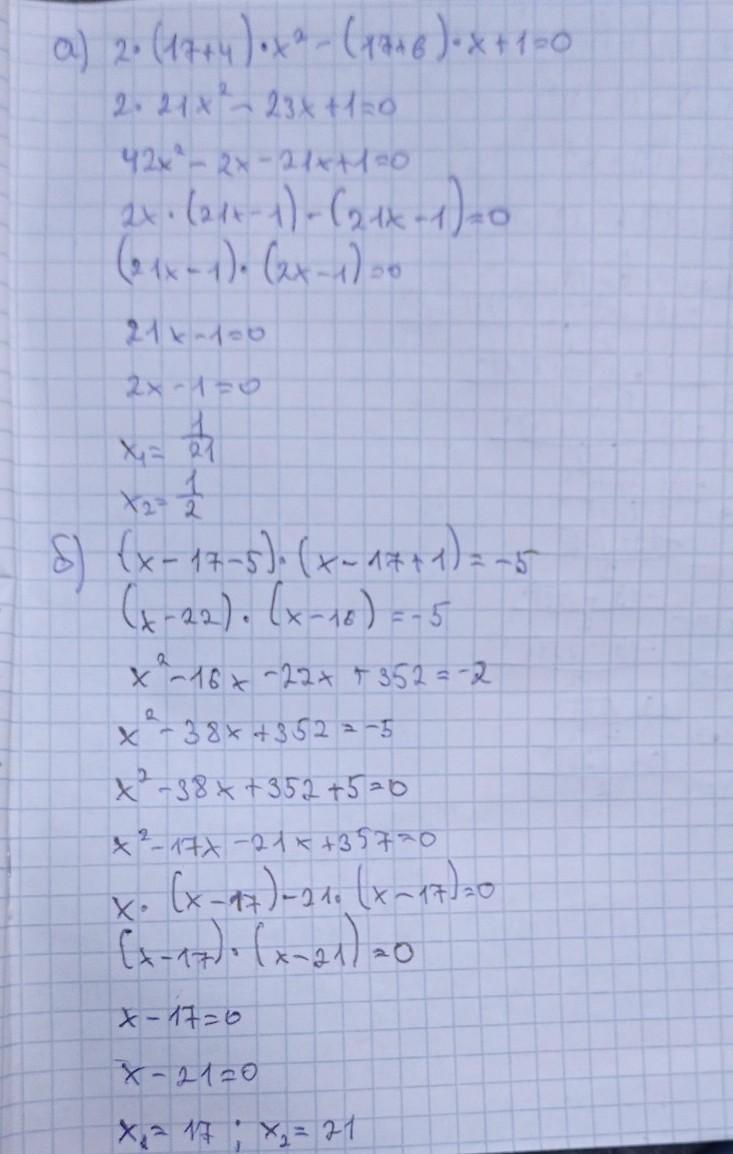 а) 2·(17+4)·x²-(17+6)·x+1=0
2·21x²-23x+1=0
42x²-2x-21x+1=0
2x·(21x-1)-(21x-1)=0
(21x-1)·(2x-1)=0
21x-1=0
2x-1=0
x₁=1/21
x₂=1/2
б) (x-17-5)·(x-17+1)=-5
(x-22)·(x-16)=-5
x²-16x-22x+352=-2
x²-38x+352=-5
x²-38x+352+5=0
x²-17x-21x+357=0
x·(x-17)-21·(x-17)=0
(x-17)·(x-21)=0
x-17=0
x-21=0
x₁=17; x₂=21